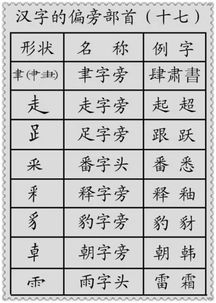 汉字的偏旁部首（十七）
形状 名 称 例 字
聿(肀⺻) 聿字旁 肆肃書
走 走字旁 起 超
⻊ 足字旁 跟 跃
釆 番字头 番 悉
釆 释字旁 释 釉
豸 豹字旁 豹 豺
龺 朝字旁 朝 韩
⻗ 雨字头 雷 霜